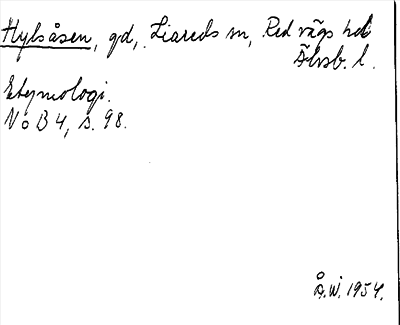 Hylsåsen, gd, Liareds sn, Redvägs hd
Älvsb. l.
Etymologi.
NoB 4, s. 98.
Å.W. 1954.